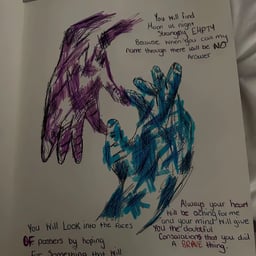 You will find
Moon at night
Strangely EMPTY
Because when you call my
name through there will be NO
Answer
Always your heart
Will be aching for me
and your mind will give
You the doubtful
Consolations that you did
A BRAVE thing.
You Will Look into the faces
OF passers by hoping
For Something that Will